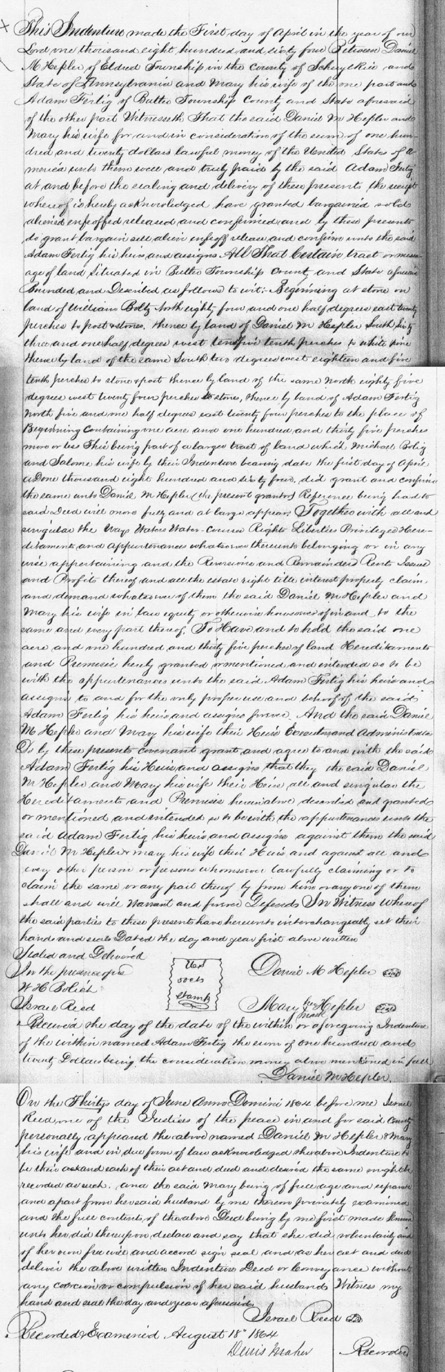 This Indenture made the First day of April in the year of our
Lord one thousand eight hundred and sixty four Between Daniel
M Hepler of Eldred Township in the County of Schuylkill and
State of Pennsylvania and Mary his wife of the one part and
Adam Fertig of Butler Township County and State aforesaid
of the other part Witnesseth That the said Daniel M Hepler and
Mary his wife for and in consideration of the sum of one hun-
dred and twenty dollars lawful money of the United States of A-
merica unto them well and truly paid by the said Adam Fertig
at and before the sealing and delivery of these presents the receipt
whereof is hereby acknowledged have granted bargained sold
aliened enfeoffed released and confirmed and by these presents
do grant bargain sell alien enfeoff release and confirm unto the said
Adam Fertig his heirs and assigns All That Certain tract or mess-
age of land situated in Butler Township County and State aforesaid
Bounded and Described as follows to wit: Beginning at stone on
land of William Boltz North eighty four and one half degrees east twenty
perches to post stones, thence by land of Daniel M Hepler South
three and one half degrees west tenth perches to white pine
thence by land of the same South degrees west eighteen and five
tenth perches to stone post thence by land of the same North eighty five
degrees west twenty four perches to stone, thence by land of Adam Fertig
North five and one half degrees east twenty four perches to the place of
Beginning Containing one acre and one hundred and thirty five perches
more or less This being part of a larger tract of land which Michael
and Salome his wife by their Indenture bearing date the first day of April
A Done thousand eight hundred and sixty four, did grant and confirm
the same unto Daniel M Hepler (the present grantor) Reference being had to
said Deed will more fully and at large appear Together with all and
singular the Ways Waters Water-Course Rights Liberties Privileges Here-
ditaments, and appurtenances whatsoever thereunto belonging or in any
wise appertaining and the Reversions and Remainders Rents Issues
and Profits thereof and all the estate right title interest property claim
and demand whatsoever of them the said Daniel M Hepler and
Mary his wife in law equity or otherwise howsoever of in and to the
same and every part thereof, To Have and to hold the said one
acre and one hundred and thirty five perches of land Hereditaments
and Premises hereby granted or mentioned and intended so to be
with the appurtenances unto the said Adam Fertig his heirs and
assigns to and for the only proper use and behoof of the said
Adam Fertig his heirs and assigns forever. And the said Daniel
M Hepler and Mary his wife their Heirs Executors and Administrators
Do by these presents covenant grant, and agree to and with the said
Adam Fertig his Heirs and assigns that they the said Daniel
M Hepler and Mary his wife their Heirs all and singular the
Hereditaments and Premises herein above described and granted
or mentioned and intended so to be with the appurtenances unto the
said Adam Fertig his heirs and assigns against them the said
Daniel M Hepler & mary his wife their Heirs and against all and
every other person or persons whomsoever lawfully claiming or to
claim the same or any part thereof by from him or any one of them
shall and will Warrant and forever Defend. In Witness whereof
the said parties to these presents have hereunto interchangeably set their
hands and seals Dated the day and year first above written
Sealed and Delivered
In the presence of us
Daniel M Hepler
W H
Israel Reed
cents
Stamp
Mary Hepler
mark
Received the day of the date of the within or aforegoing Indenture
of the within named Adam Fertig the sum of one hundred and
twenty Dollars being the consideration money above mentioned in full
Daniel M Hepler
On the Thirty day of June Anno Domini 1864 before me Israel
Reed one of the Justices of the peace in and for said County
personally appeared the above named Daniel M Hepler & Mary
his wife and in due form of law acknowledged the above Indenture to
be their act and each of their act and deed and desired the same might be
recorded as such. and the said Mary being of full age and separate
and apart from her said husband by me thereon privately examined
and the full contents of the above Deed being by me first made known
unto her did thereupon declare and say that she did voluntarily and
of her own free will and accord sign seal and as her act and deed
deliver the above written Indenture Deed or Conveyance without
any coercion or compulsion of her said husband. Witness my
hand and seal the day and year aforesaid.
Israel Reed
Recorded & Examined August 18th 1864
Denis Maher
Recorder